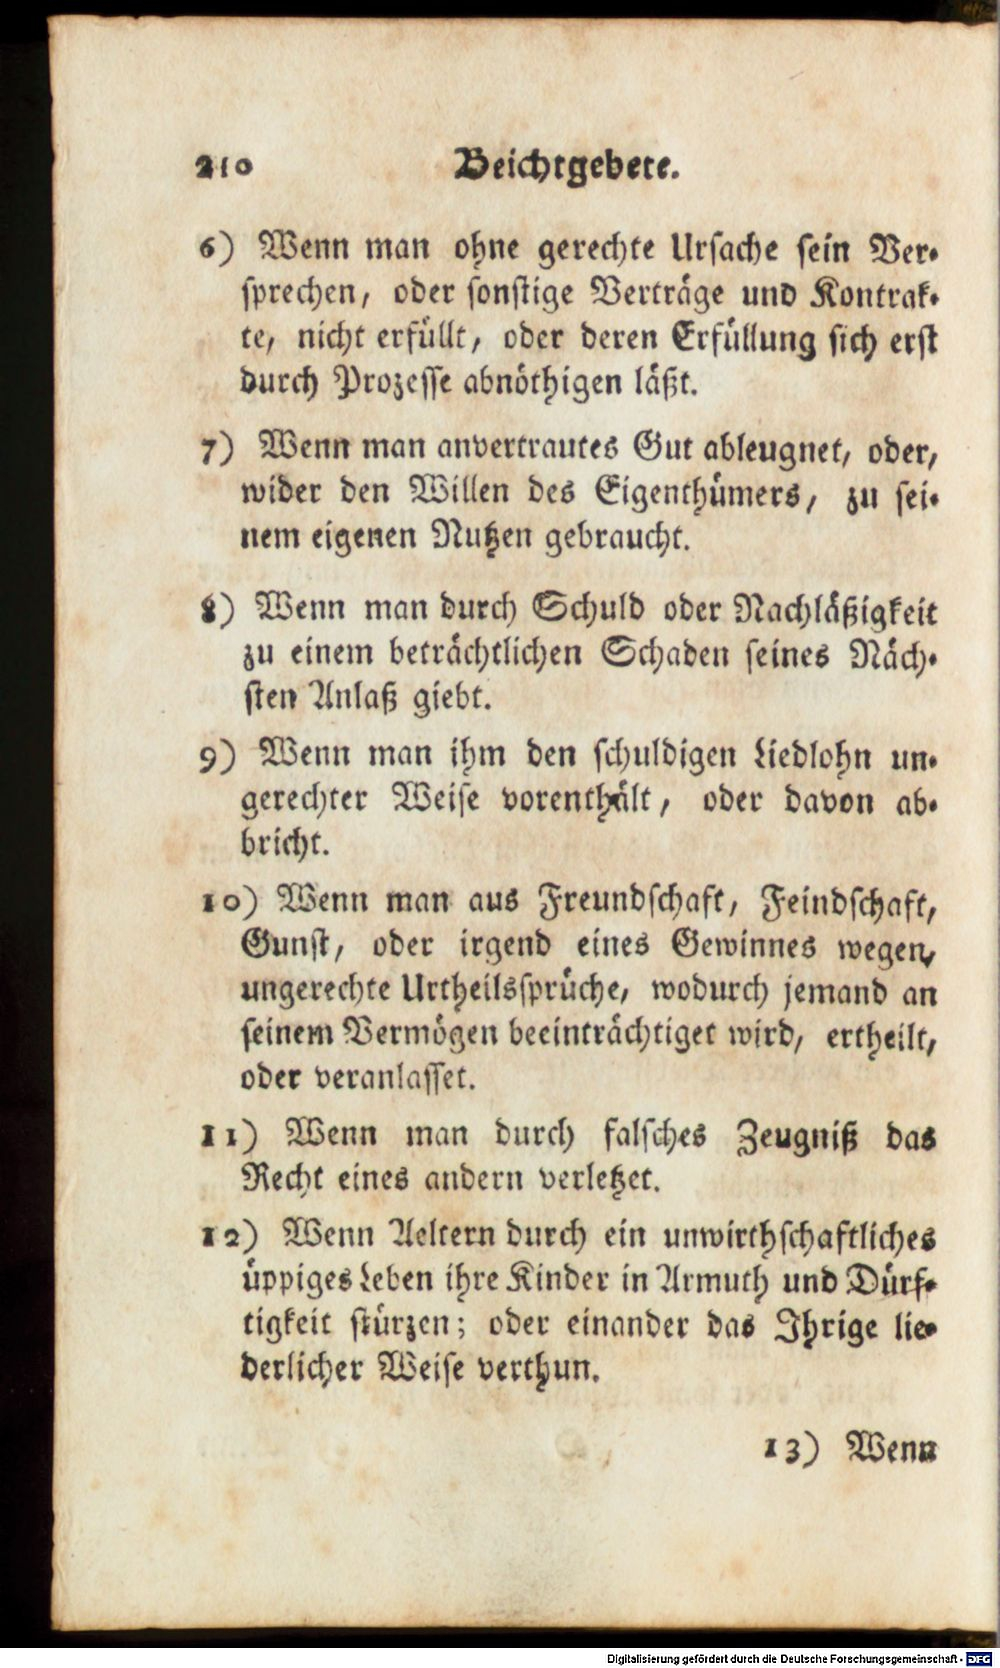 210 Beichtgebete.
6) Wenn man ohne gerechte Ursache sein Ver-
sprechen, oder sonstige Verträge und Kontrak-
te, nicht erfüllt, oder deren Erfüllung sich erst
durch Prozesse abnöthigen läßt.
7) Wenn man anvertrautes Gut ableugnet, oder,
wider den Willen des Eigenthümers, zu sei-
nem eigenen Nutzen gebraucht.
8) Wenn man durch Schuld oder Nachläßigkeit
zu einem beträchtlichen Schaden seines Näch-
sten Anlaß giebt.
9) Wenn man ihm den schuldigen Liedlohn un-
gerechter Weise vorenthält, oder davon ab-
bricht.
10) Wenn man aus Freundschaft, Feindschaft,
Gunst, oder irgend eines Gewinnes wegen,
ungerechte Urtheilssprüche, wodurch jemand an
seinem Vermögen beeinträchtiget wird, ertheilt,
oder veranlasset.
11) Wenn man durch falsches Zeugniß das
Recht eines andern verletzet.
12) Wenn Aeltern durch ein unwirthschaftliches
üppiges Leben ihre Kinder in Armuth und Dürf-
tigkeit stürzen; oder einander das Ihrige lie-
derlicher Weise verthun.
13) Wenn
Digitalisierung gefördert durch die Deutsche Forschungsgemeinschaft - DFG